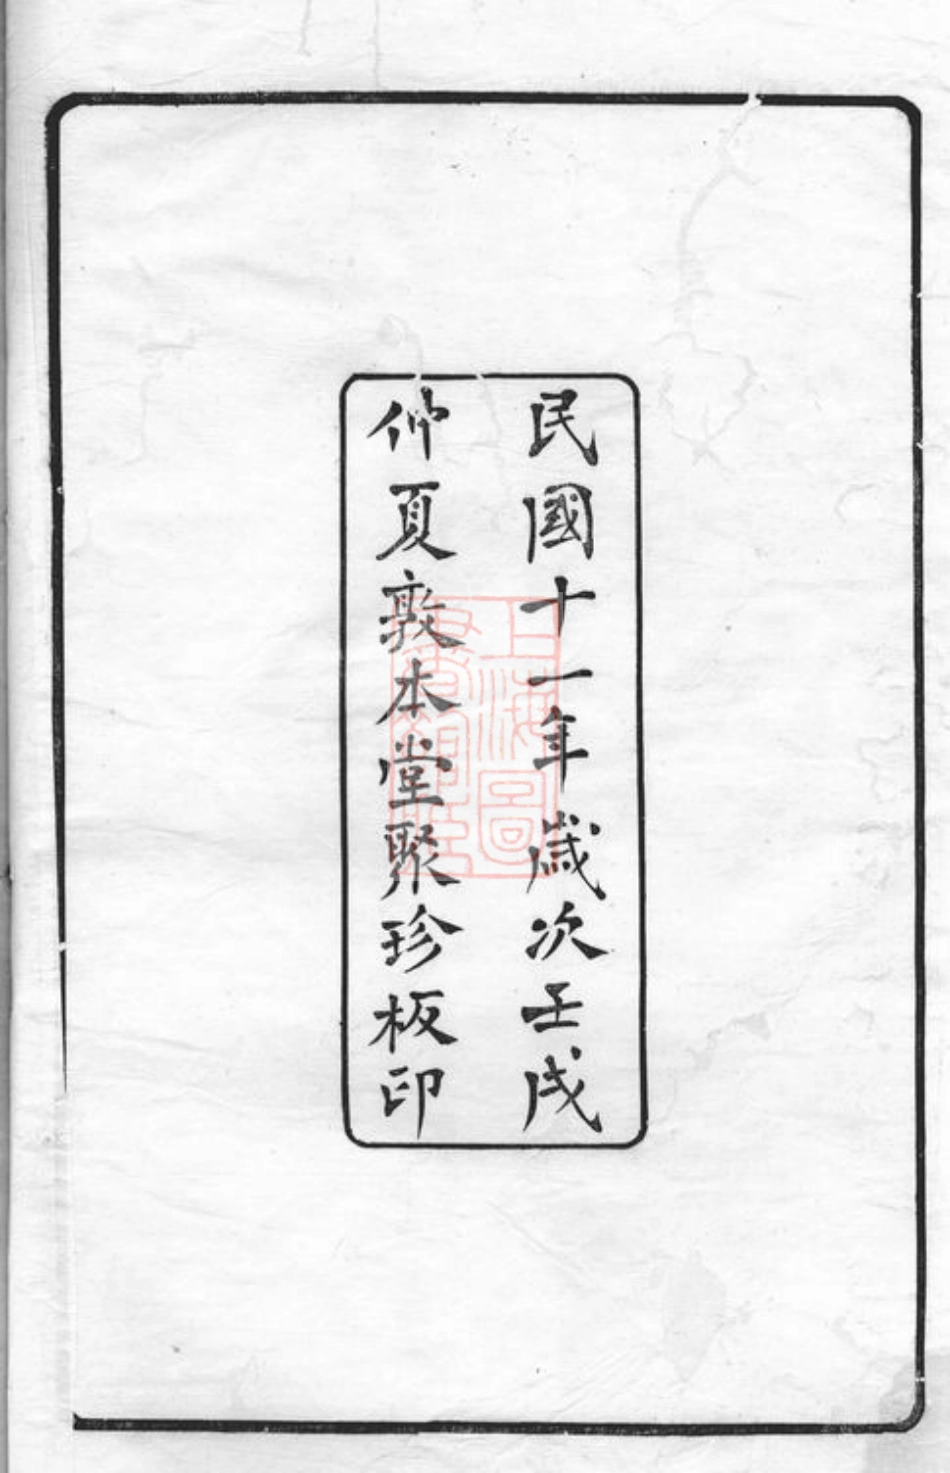 民國十一年歲次壬戌
仲夏敦本堂聚珍板印
上海圖
書館藏